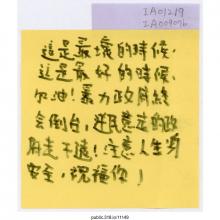 IA01219
IA009076
這是最壞的時候，
這是最好的時候，
加油！暴力政府終
會倒台，逆民意走的政
府走不遠！注意人生身
安全，祝福你！
public.318.io/11149